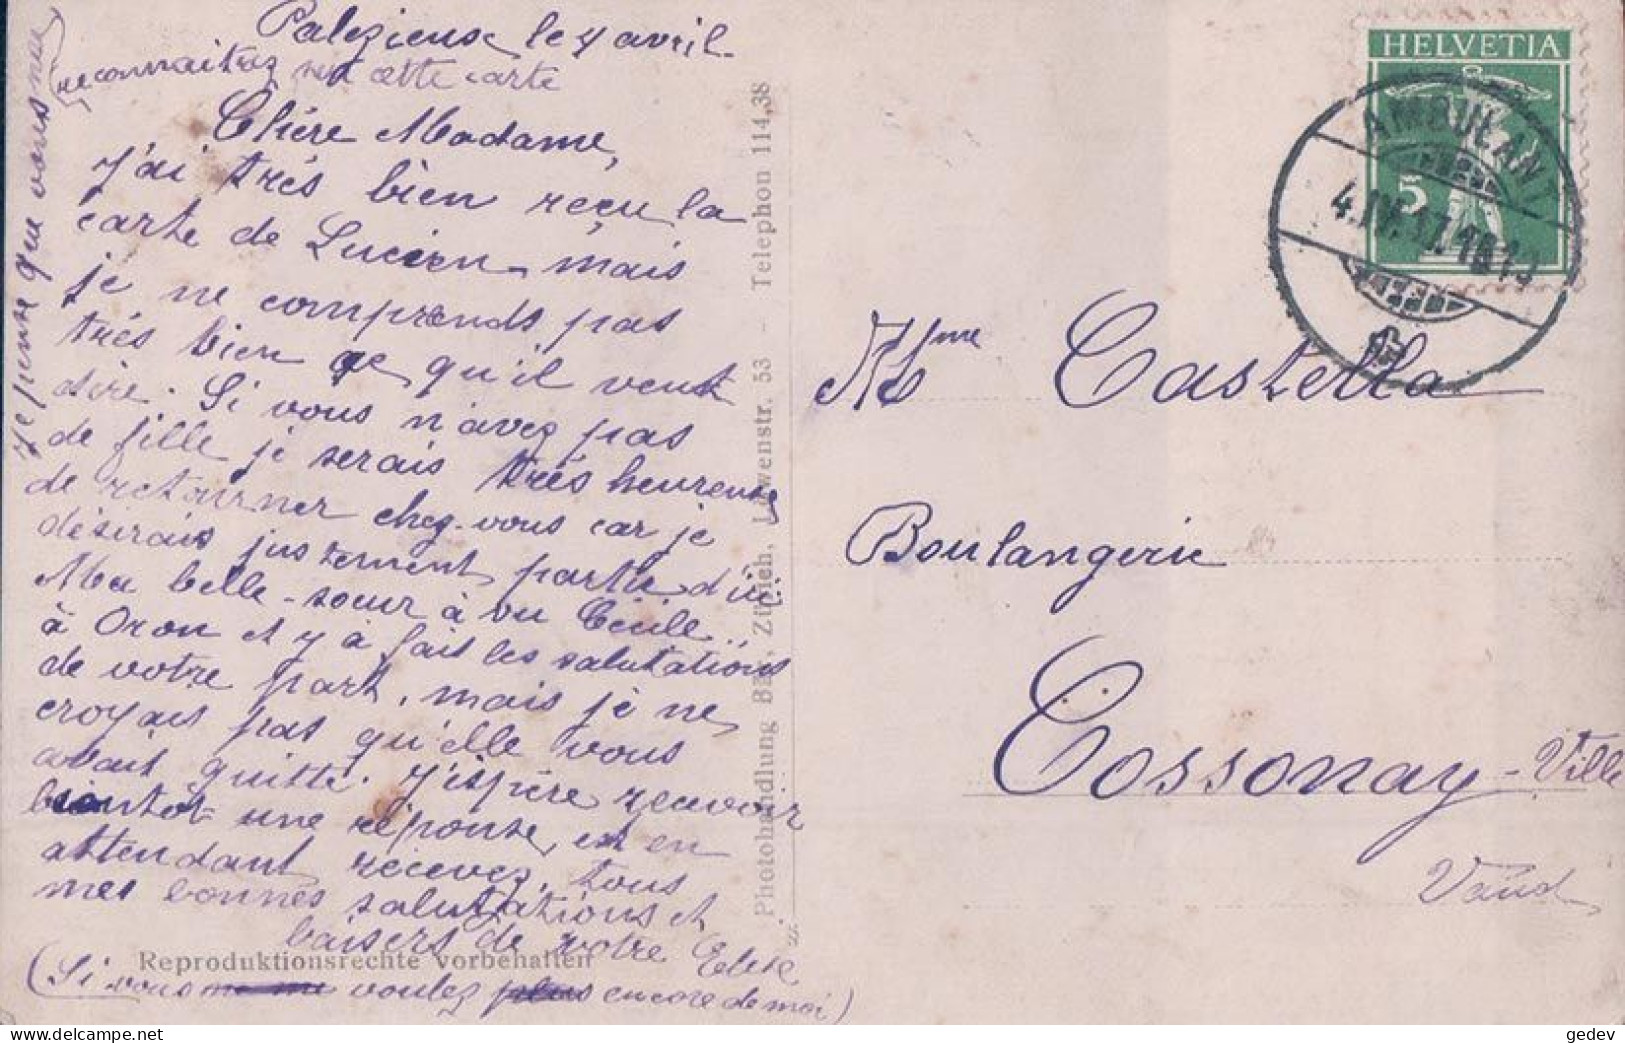 Palezieux le 4 avril
(reconnaitrez sur cette carte
Chère Madame,
J'ai très bien reçu la
carte de Lucien mais
je ne comprends pas
très bien ce qu'il veut
dire. Si vous n'avez pas
de fille je serais très heureuse
de retourner chez-vous car je
désirais justement partir d'ici
Ma belle-sœur à vu Cécile..
à Oron et y à fait les salutations
de votre part, mais je ne
croyais pas qu'elle vous
avait quitté. J'espère recevoir
bientôt une réponse, et en
attendant recevez, tous
mes bonnes salutations et
baisers de votre
(Si vous voulez encore de moi)
Je pense que vous me
Reproduktionsrechte vorbehalten
Photohandlung Zürich, Löwenstr. 53 - Telephon 114,38
HELVETIA
5
AMBULANT
4.IV.17.
Mme Castella
Boulangerie
Cossonay-Ville
Vaud
gedev